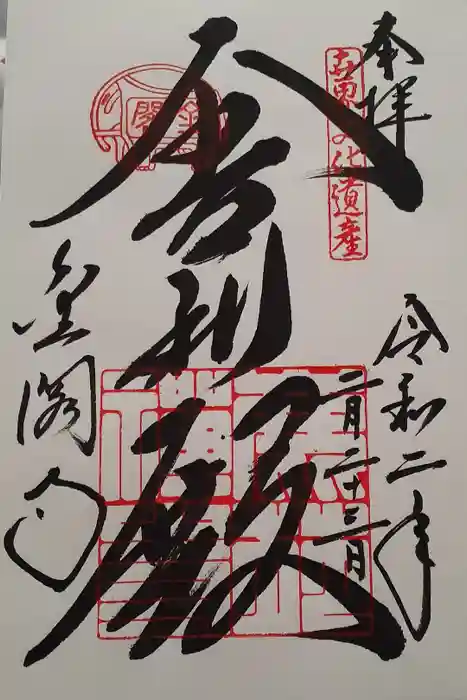 奉拝
世界文化遺産
令和二年
二月二十三日
舎利殿
金閣
金閣寺